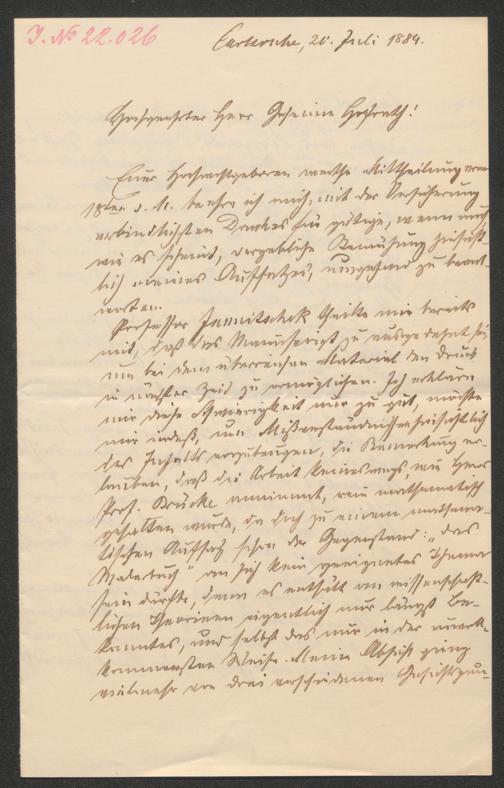 J. No 22.026
Carlsruhe, 20. Juli 1884.
Hochgeehrter Herr Geheime Hofrath!
Euer Hochwohlgeboren werthe Mittheilung vom
18ten d. M. beehre ich mich, mit der Versicherung
verbindlichsten Dankes für gütige, wenn auch
wie es scheint, vergebliche Bemühung hinsicht-
lich meines Aufsatzes, umgehend zu beant-
worten.
Professor Janitschek theilte mir bereits
mit, daß das Manuscript zu ausgedehnt sei
um bei dem überreichen Material den Druck
in nächster Zeit zu ermöglichen. Ich erkläre
mir diese Schwierigkeit nur zu gut, möchte
mir indeß, um Mißverständnissen hinsichtlich
des Inhalts vorzubeugen, die Bemerkung er-
lauben, daß die Arbeit keineswegs, wie Herr
Prof. Brücke annimmt, rein mathematisch
gehalten wurde, da doch zu einem mathema-
tischen Aufsatz schon der Gegenstand: „das
Malerbuch" an sich kein geeignetes Thema
sein dürfte, denn es enthält an wissenschaft-
lichen Theorieen eigentlich nur längst Be-
kanntes, und selbst das nur in der unvoll-
kommensten Weise. Meine Absicht ging
vielmehr von drei verschiedenen Gesichtspun-